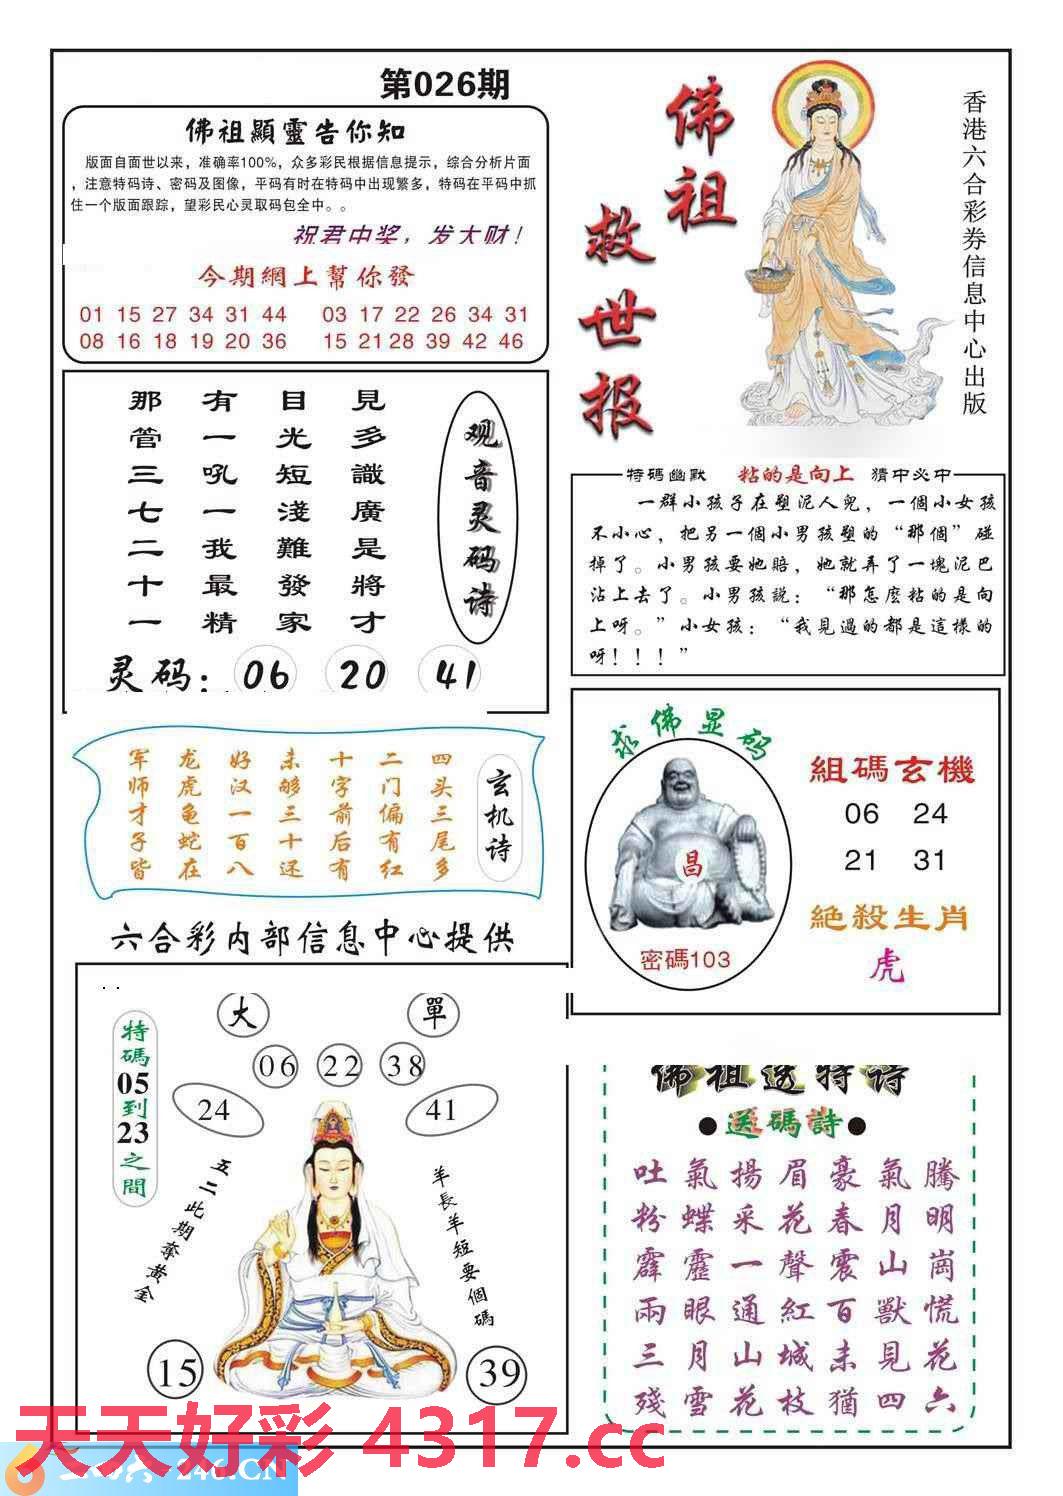 第026期
佛祖顯靈告你知
版面自面世以来，准确率100%，众多彩民根据信息提示，综合分析片面
，注意特码诗、密码及图像，平码有时在特码中出现繁多，特码在平码中抓
住一个版面跟踪，望彩民心灵取码包全中。。
祝君中奖，发大财！
今期網上幫你發
01 15 27 34 31 44
03 17 22 26 34 31
08 16 18 19 20 36
15 21 28 39 42 46
佛祖
救世报
香港六合彩券信息中心出版
观音灵码诗
見多識廣是將才
目光短淺難發家
有一吼一我最精
那管三七二十一
灵码：06 20 41
特碼幽默 粘的是向上 猜中必中
一群小孩子在塑泥人兒，一個小女孩
不小心，把另一個小男孩塑的“那個”碰
掉了。小男孩要她賠，她就弄了一塊泥巴
沾上去了。小男孩説：“那怎麽粘的是向
上呀。”小女孩：“我見過的都是這樣的
呀！！！”
玄机诗
四头三尾多
二门偏有红
十字前后有
未够三十还
好汉一百八
龙虎龟蛇在
军师才子皆
求佛显码
昌
密碼103
組碼玄機
06 24
21 31
絕殺生肖
虎
六合彩内部信息中心提供
特碼05到23之間
大
單
06 22 38
24
41
五二此期奪黄金
羊長羊短要個碼
15
39
佛祖送特诗
●送碼詩●
吐氣揚眉豪氣騰
粉蝶采花春月明
霹靂一聲震山崗
兩眼通紅百獸慌
三月山城未見花
殘雪花枝猶四六
天天好彩 4317.cc
246.CN